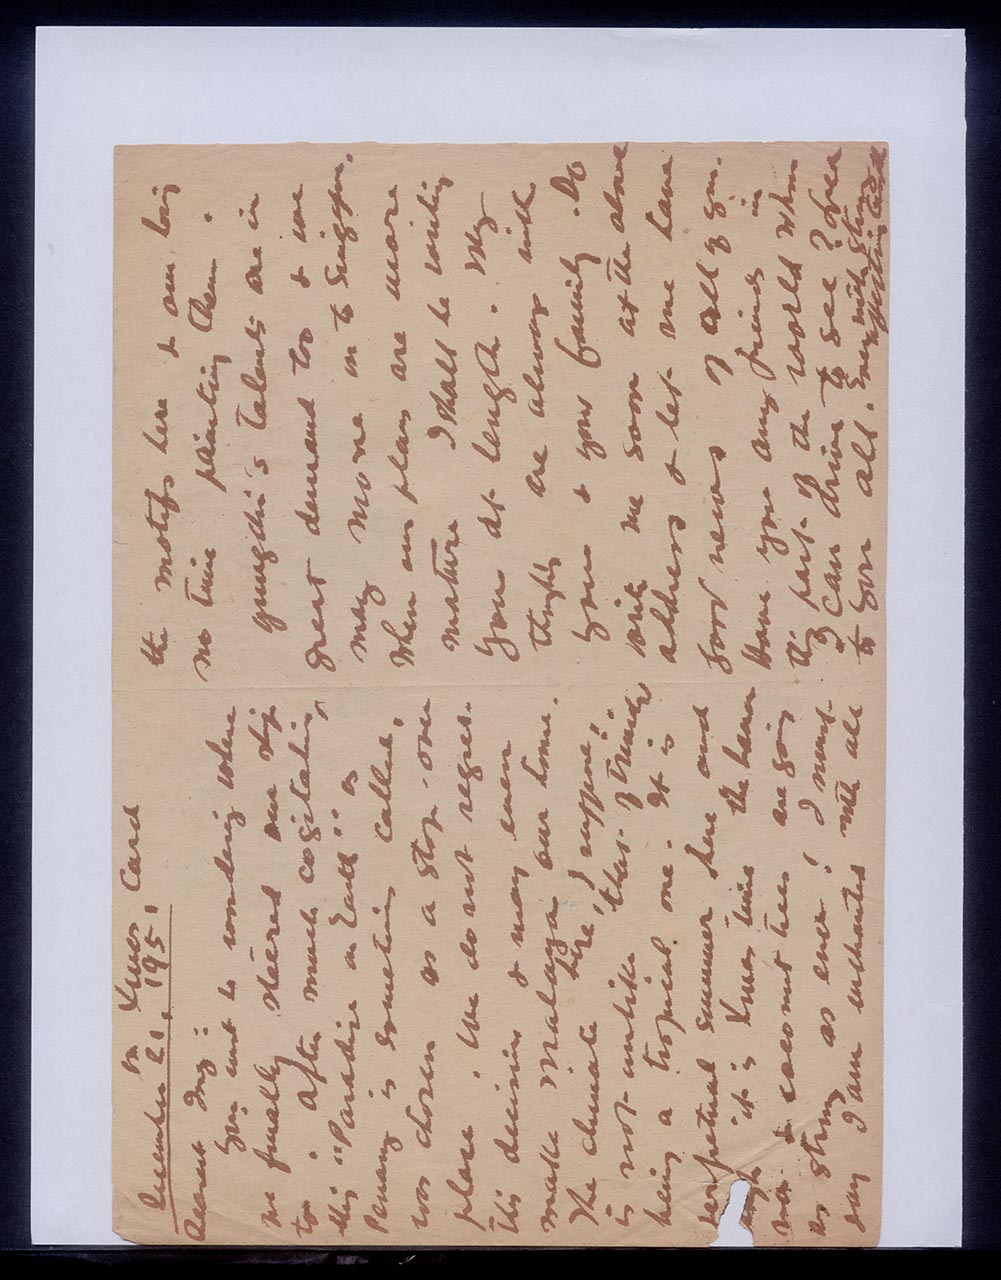 on Xmas Card
December 21, 1951
Dearest Ivy:
You must be wondering where
we finally steered our ship
to. After much cogitating,
this "Paradise on Earth" as
Penang is sometimes called,
was chosen as a stop-over
place. We do not regret
this decision & may even
make Malaya our home.
The climate here, I suppose,
is not unlike that of Trinidad
being a tropical one. It is
perpetual summer here and
it is Xmas time the
& coconut trees are going
as strong as ever! I must
say I am enchanted with all
the motifs here & am losing
no time painting them.
Yungchi's talents are in
great demand too & we
may move on to Singapore.
When our plans are more
mature I shall be writing
you at length. My
thoughts are always with
you & your family. Do
write me soon at the above
address & let me have
good news of all of you.
Have you any friends in
this part of the world whom
I can drive to see? Love
to you all. Ever